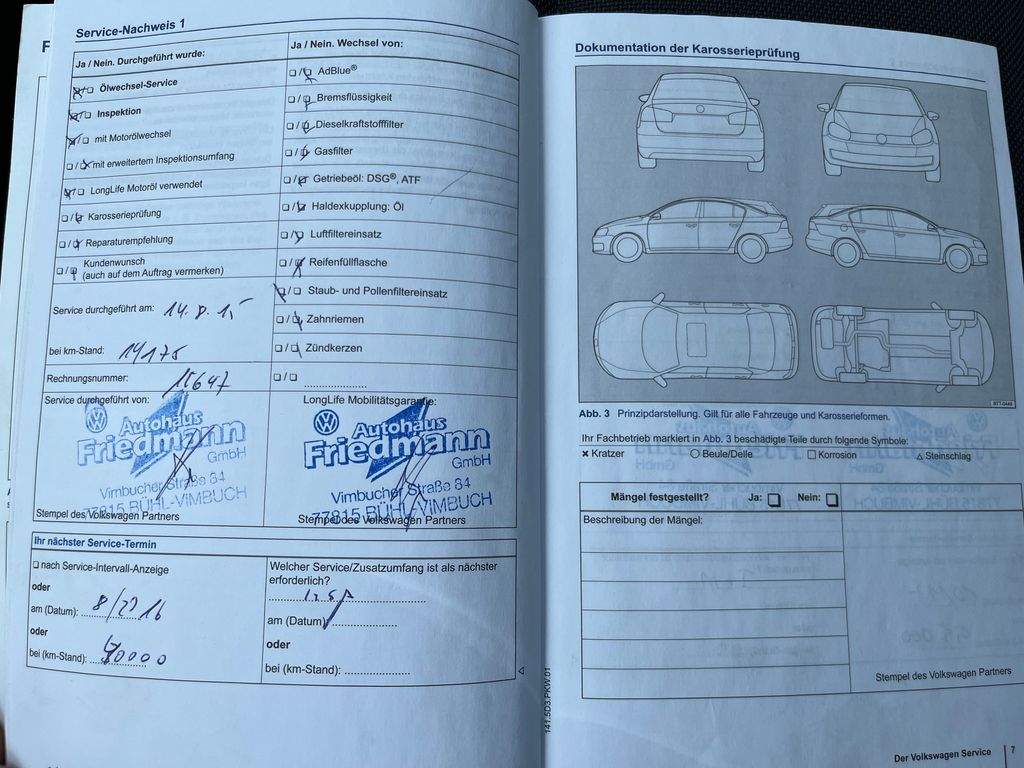 Service-Nachweis 1
Ja / Nein. Durchgeführt wurde:
Ölwechsel-Service
Inspektion
mit Motorölwechsel
mit erweitertem Inspektionsumfang
LongLife Motoröl verwendet
Karosserieprüfung
Reparaturempfehlung
Kundenwunsch
(auch auf dem Auftrag vermerken)
Service durchgeführt am: 14. 8. 15
bei km-Stand: 14175
Rechnungsnummer: 15647
Service durchgeführt von:
Autohaus
Friedmann
GmbH
Vimbucher Straße 84
77815 BÜHL-VIMBUCH
Stempel des Volkswagen Partners
Ja / Nein. Wechsel von:
AdBlue®
Bremsflüssigkeit
Dieselkraftstofffilter
Gasfilter
Getriebeöl: DSG®, ATF
Haldexkupplung: Öl
Luftfiltereinsatz
Reifenfüllflasche
Staub- und Pollenfiltereinsatz
Zahnriemen
Zündkerzen
LongLife Mobilitätsgarantie:
Autohaus
Friedmann
GmbH
Vimbucher Straße 84
77815 BÜHL-VIMBUCH
Stempel des Volkswagen Partners
Ihr nächster Service-Termin
nach Service-Intervall-Anzeige
oder
am (Datum): 8/2016
oder
bei (km-Stand):
Welcher Service/Zusatzumfang ist als nächster
erforderlich?
am (Datum)
oder
bei (km-Stand):
141.5D3.PKW.01
Dokumentation der Karosserieprüfung
B7T-0448
Abb. 3 Prinzipdarstellung. Gilt für alle Fahrzeuge und Karosserieformen.
Ihr Fachbetrieb markiert in Abb. 3 beschädigte Teile durch folgende Symbole:
× Kratzer ○ Beule/Delle □ Korrosion △ Steinschlag
Mängel festgestellt? Ja: Nein:
Beschreibung der Mängel:
Stempel des Volkswagen Partners
Der Volkswagen Service 7